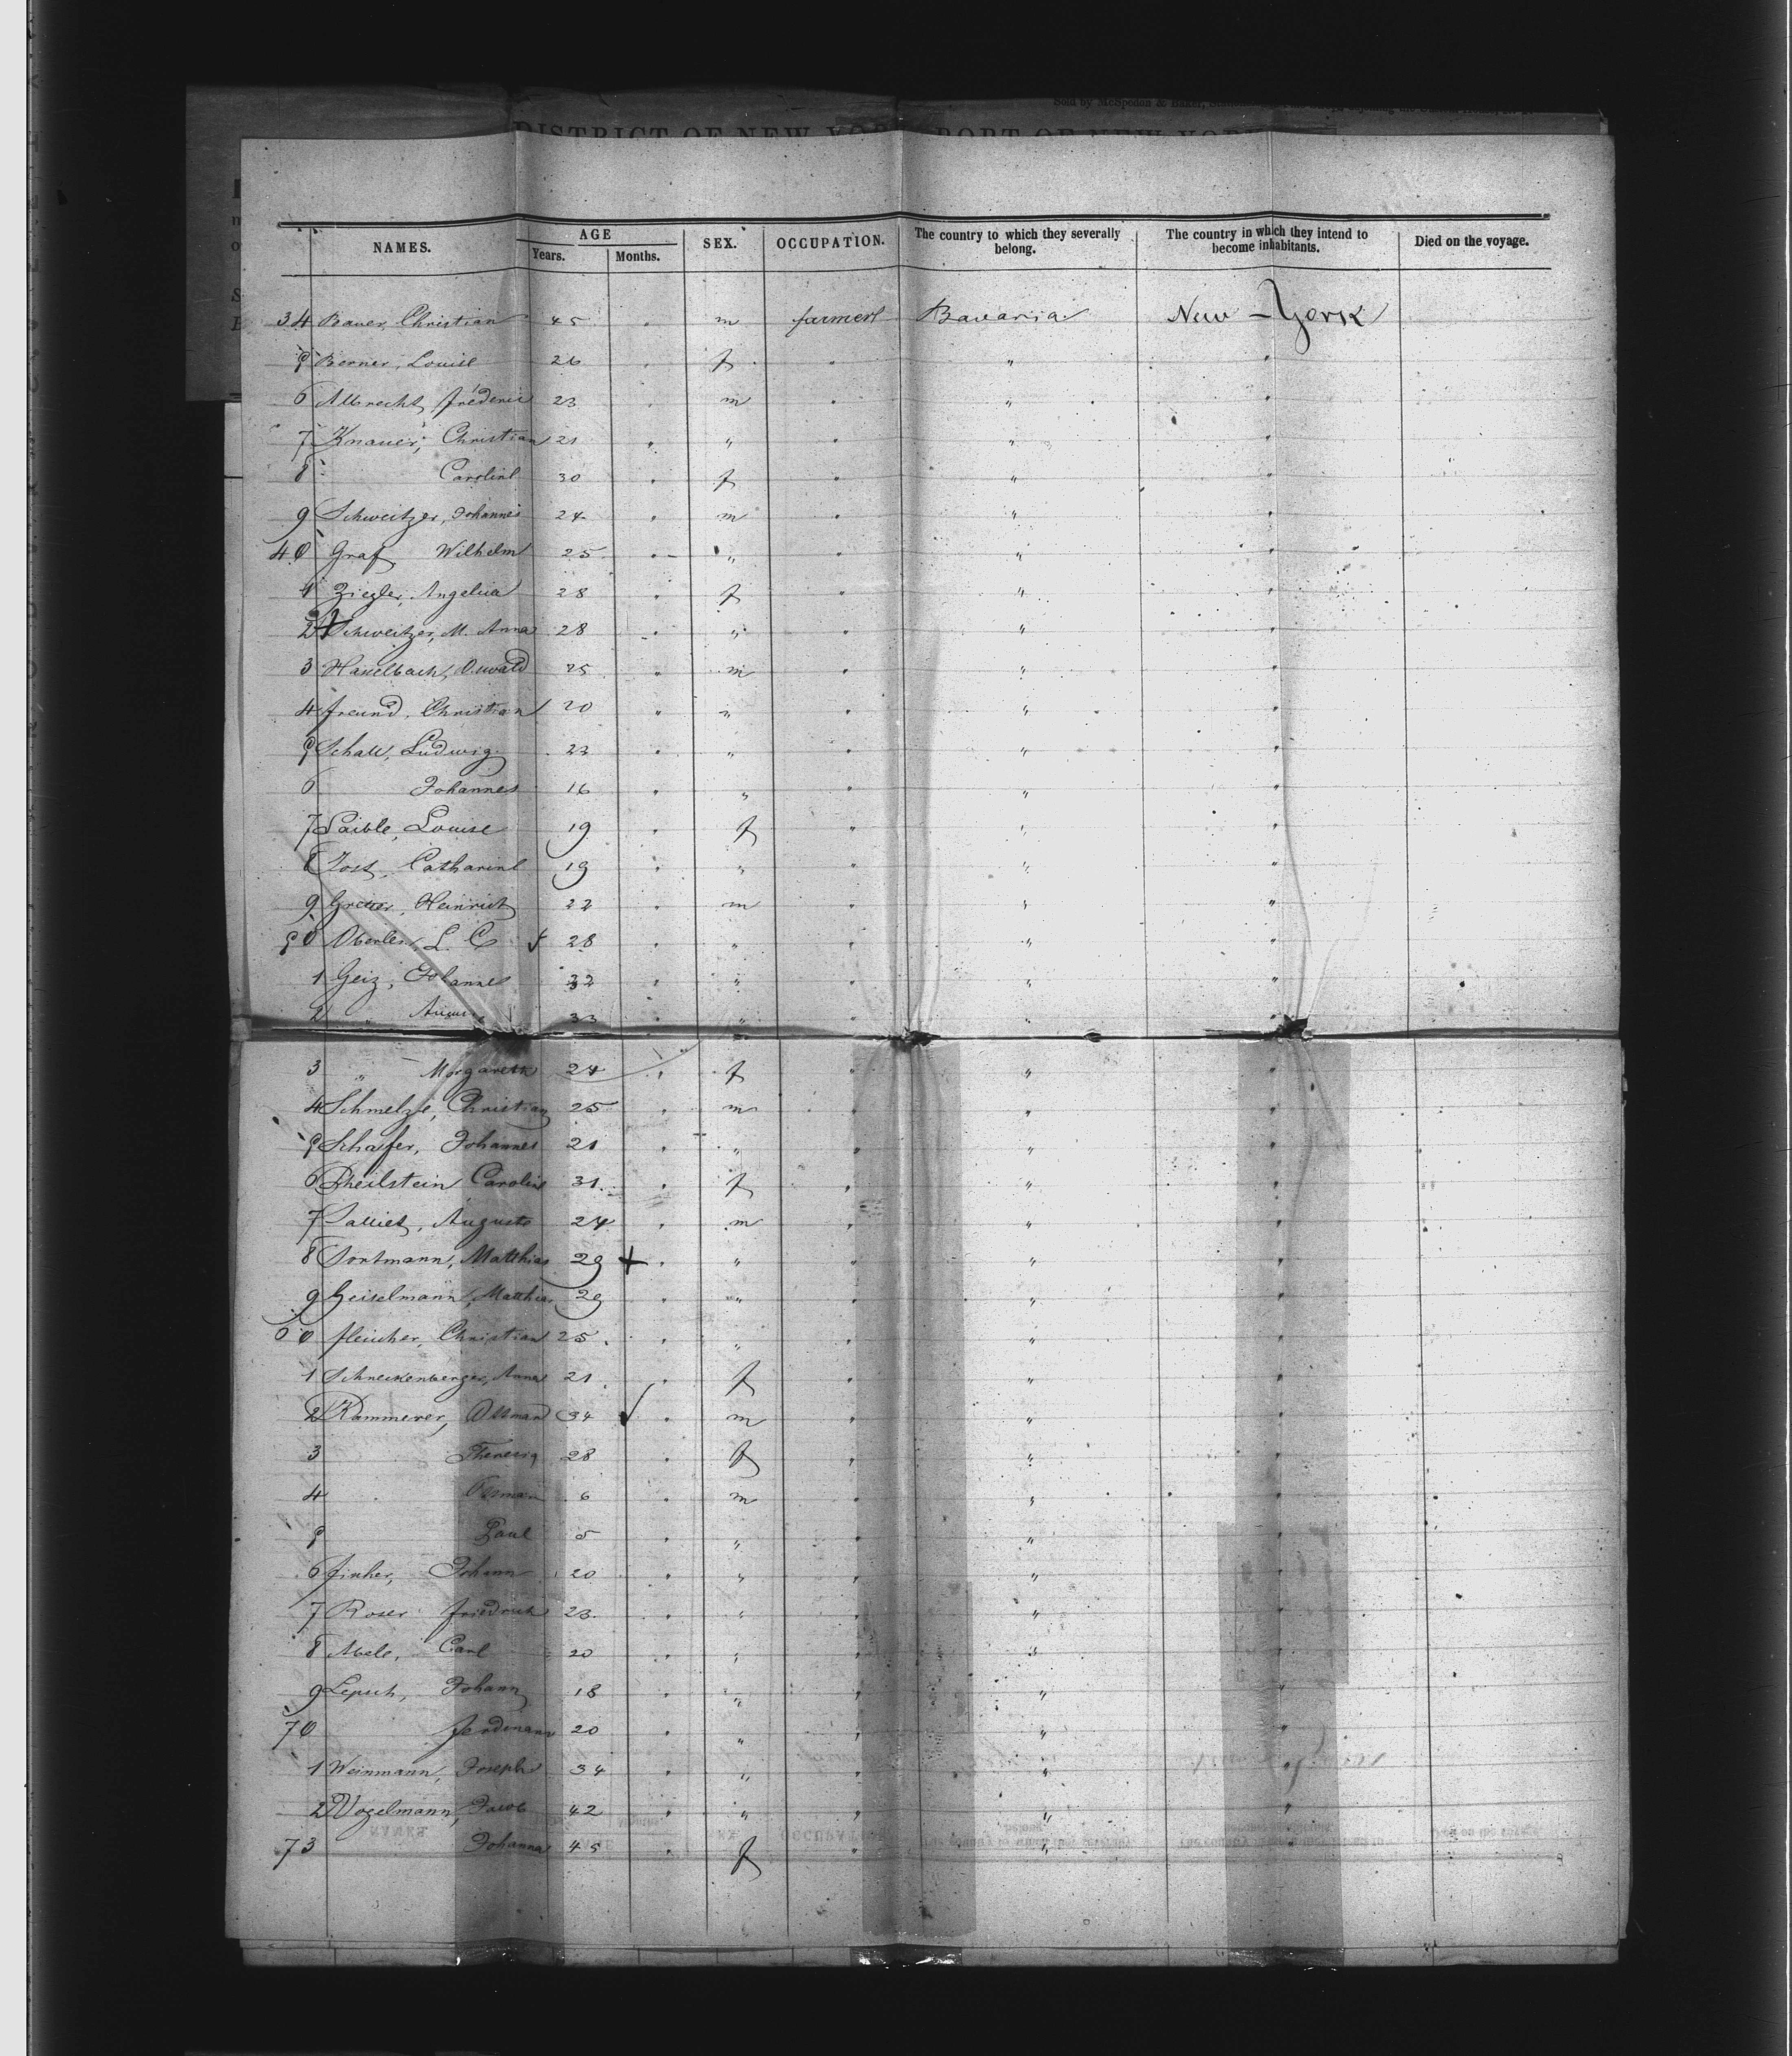 DISTRICT OF NEW YORK PORT OF NEW YORK
NAMES. AGE Years. Months. SEX. OCCUPATION. The country to which they severally belong. The country in which they intend to become inhabitants. Died on the voyage.
34 Bauer, Christian 45 " m farmer Bavaria New-York
5 Berner, Louise 26 " f " " "
6 Albrecht, frederic 23 " m " " "
7 Knauer, Christian 21 " " " " "
8 Caroline 30 " f " " "
9 Schweitzer, Johannes 24 " m " " "
40 Graf Wilhelm 25 " " " " "
1 Ziegler, Angelica 28 " f " " "
2 Schweitzer, M. Anna 28 " " " " "
3 Hasselbach, Oswald 25 " m " " "
4 freund, Christian 20 " " " " "
5 Schall, Ludwig 23 " " " " "
6 Johannes 16 " " " " "
7 Laible, Louise 19 " f " " "
8 Jost, Catharine 19 " " " " "
9 Heinrich 22 " m " " "
50 Oberlen, L. C 28 " " " " "
1 Geiz, Johannes 32 " " " " "
2 " August 33 " " " " "
3 " Margareth 24 " f " " "
4 Schmelze, Christian 25 " m " " "
5 Schafer, Johannes 21 " " " " "
6 Pheilstein Caroline 31 " f " " "
7 Auguste 24 " m " " "
8 Dortmann, Matthias 29 + " " " " "
9 Geiselmann, Matthias 29 " " " " "
60 fleischer, Christian 25 " " " " "
1 Schneckenberger, Anna 21 " f " " "
2 Kammerer, Ottman 34 " m " " "
3 Theresia 28 " f " " "
4 6 " m " " "
5 Paul 5 " " " " "
6 fischer, Johann 20 " " " " "
7 Roser friedrich 23 " " " " "
8 Abele, Carl 20 " " " " "
9 Lepsch, Johann 18 " " " " "
70 20 " " " " "
1 Weinmann, Joseph 34 " " " " "
2 Vogelmann, Jacob 42 " " " " "
73 Johanna 45 " f " "